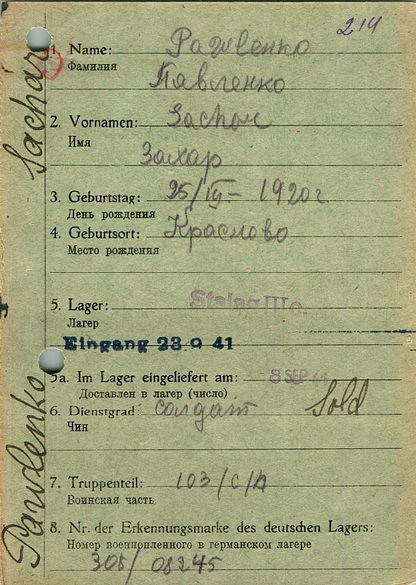 214
1. Name: Pawlenko
Фамилия
Павленко
2. Vornamen: Sachar
Имя
Захар
3. Geburtstag: 25/III – 1920г
День рождения
4. Geburtsort: Краслово
Место рождения
5. Lager: Stalag III
Лагер
Eingang 23. 9. 41
5a. Im Lager eingeliefert am: 8 SEP
Доставлен в лагер (число)
6. Dienstgrad: солдат Sold
Чин
7. Truppenteil: 103/с/п
Воинская часть
8. Nr. der Erkennungsmarke des deutschen Lagers:
Номер военнопленного в германском лагере
305/08245
Pawlenko Sachár